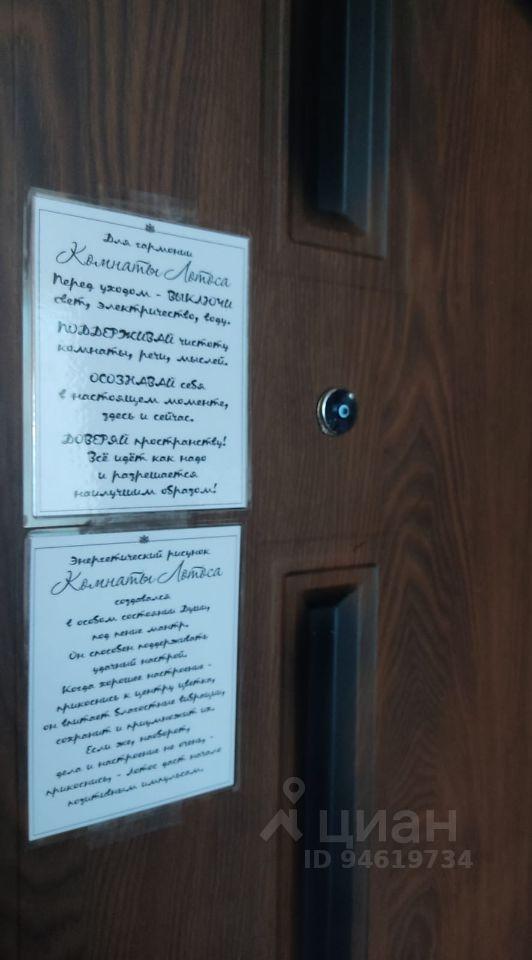 Для гармонии
Комнаты Лотоса
Перед уходом - ВЫКЛЮЧИ
свет, электричество, воду.
ПОДДЕРЖИВАЙ чистоту
комнаты, речи, мыслей.
ОСОЗНАВАЙ себя
в настоящем моменте,
здесь и сейчас.
ДОВЕРЯЙ пространству!
Всё идёт как надо
и разрешается
наилучшим образом!
Энергетический рисунок
Комнаты Лотоса
создавался
в особом состоянии Души,
под пение мантр.
Он способен поддерживать
удачный настрой.
Когда хорошее настроение -
прикоснись к центру цветка,
он впитает благостные вибрации,
сохранит и приумножит их.
Если же, наоборот,
дела и настроение не очень, -
прикоснись, - Лотос даст начало
позитивным импульсам.
циан
ID 94619734